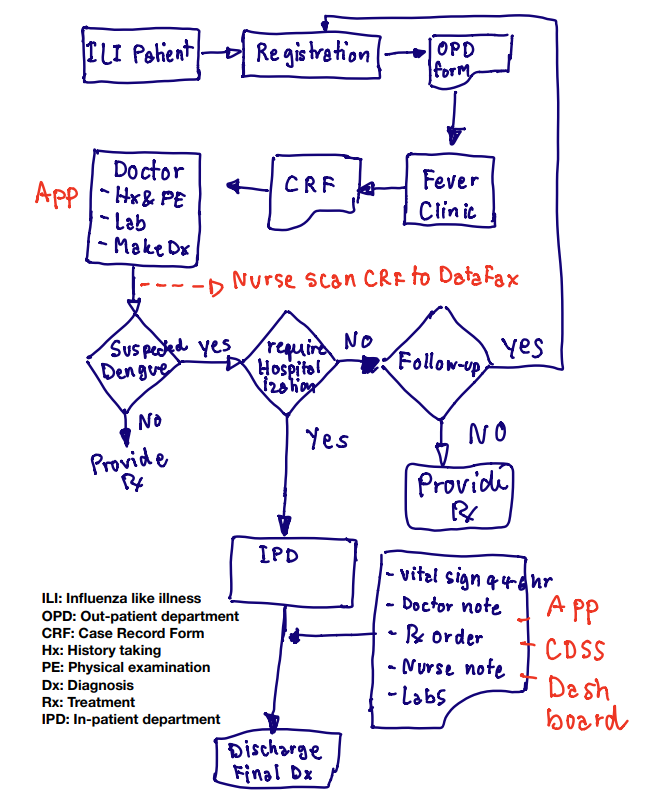 ILI Patient
Registration
OPD
form
Doctor
- Hx & PE
- Lab
- Make Dx
App
CRF
Fever
Clinic
Nurse scan CRF to DataFax
Suspected
Dengue
yes
require
Hospital
ization
No
Follow-up
yes
No
Provide
Rx
Yes
NO
Provide
Rx
IPD
- Vital sign q 4-6 hr
- Doctor note
- Rx order
- Nurse note
- Labs
- App
- CDSS
- Dash
board
ILI: Influenza like illness
OPD: Out-patient department
CRF: Case Record Form
Hx: History taking
PE: Physical examination
Dx: Diagnosis
Rx: Treatment
IPD: In-patient department
Discharge
Final Dx